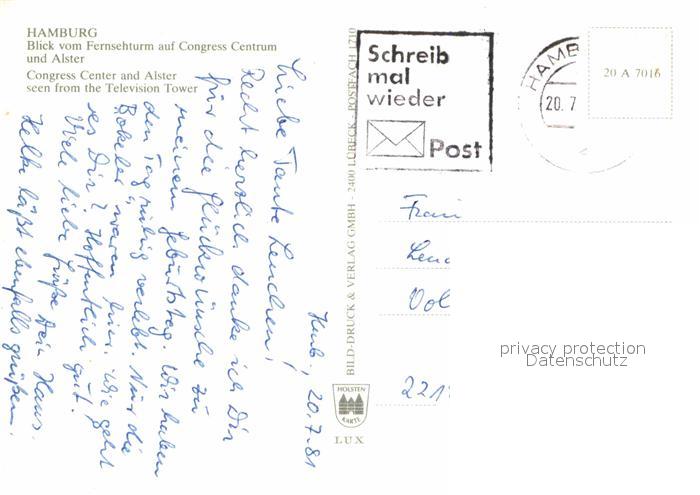 HAMBURG
Blick vom Fernsehturm auf Congress Centrum
und Alster
Congress Center and Alster
seen from the Television Tower
Hmb., 20.7.81
Liebe Tante Lenchen!
Recht herzlich danke ich Dir
für die Glückwünsche zu
meinem Geburtstag. Wir haben
den Tag ruhig verlebt. Nur die
waren hier. Wie geht
es Dir? Hoffentlich gut!
Viele liebe Grüße Dein Hans.
Helke läßt ebenfalls grüßen.
BILD-DRUCK & VERLAG GMBH - 2400 LÜBECK - POSTFACH 1710
HOLSTEN
KARTE
LUX
Schreib
mal
wieder
Post
HAMB
20.7
20 A 7016
Frau
Lenc
Vol
221
privacy protection
Datenschutz